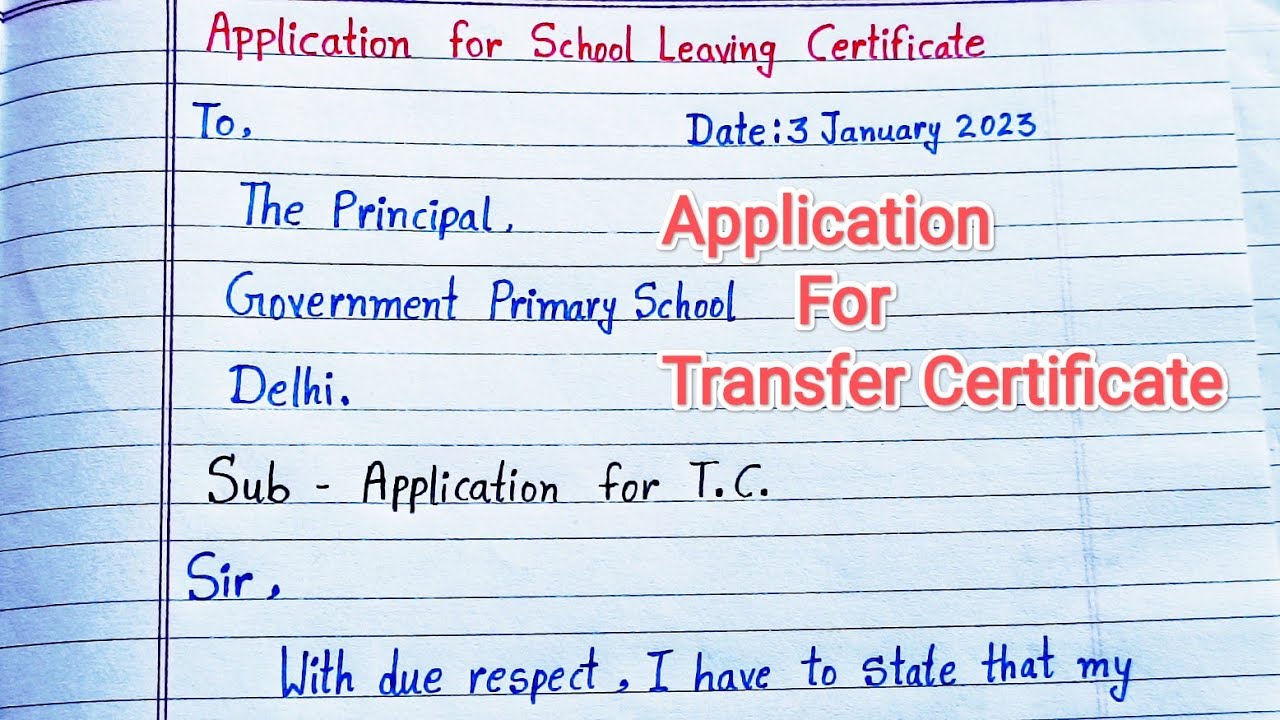 Application for School Leaving Certificate
To,
Date: 3 January 2023
The Principal,
Government Primary School
Delhi.
Application
For
Transfer Certificate
Sub - Application for T.C.
Sir,
With due respect, I have to state that my